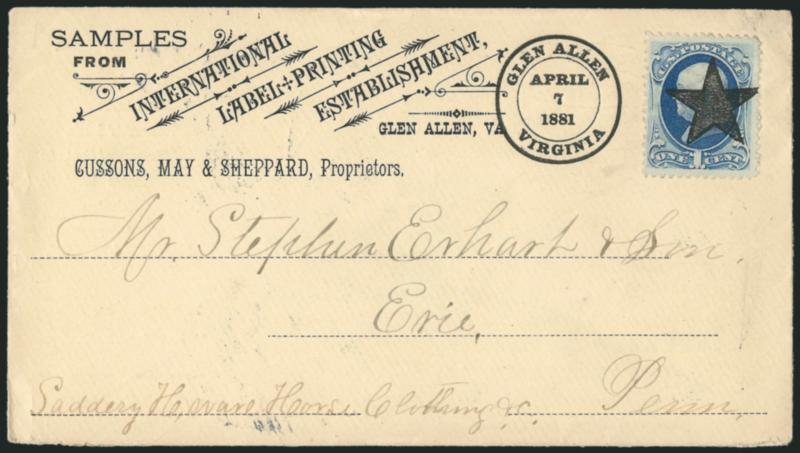 SAMPLES
FROM
INTERNATIONAL
LABEL + PRINTING
ESTABLISHMENT,
GLEN ALLEN, VA
CUSSONS, MAY & SHEPPARD, Proprietors.
GLEN ALLEN
APRIL
7
1881
VIRGINIA
U.S. POSTAGE
ONE CENT
Mr. Stephen Erhart & Son.
Erie,
Saddery H,ware Horse Clothing &c. Penn.